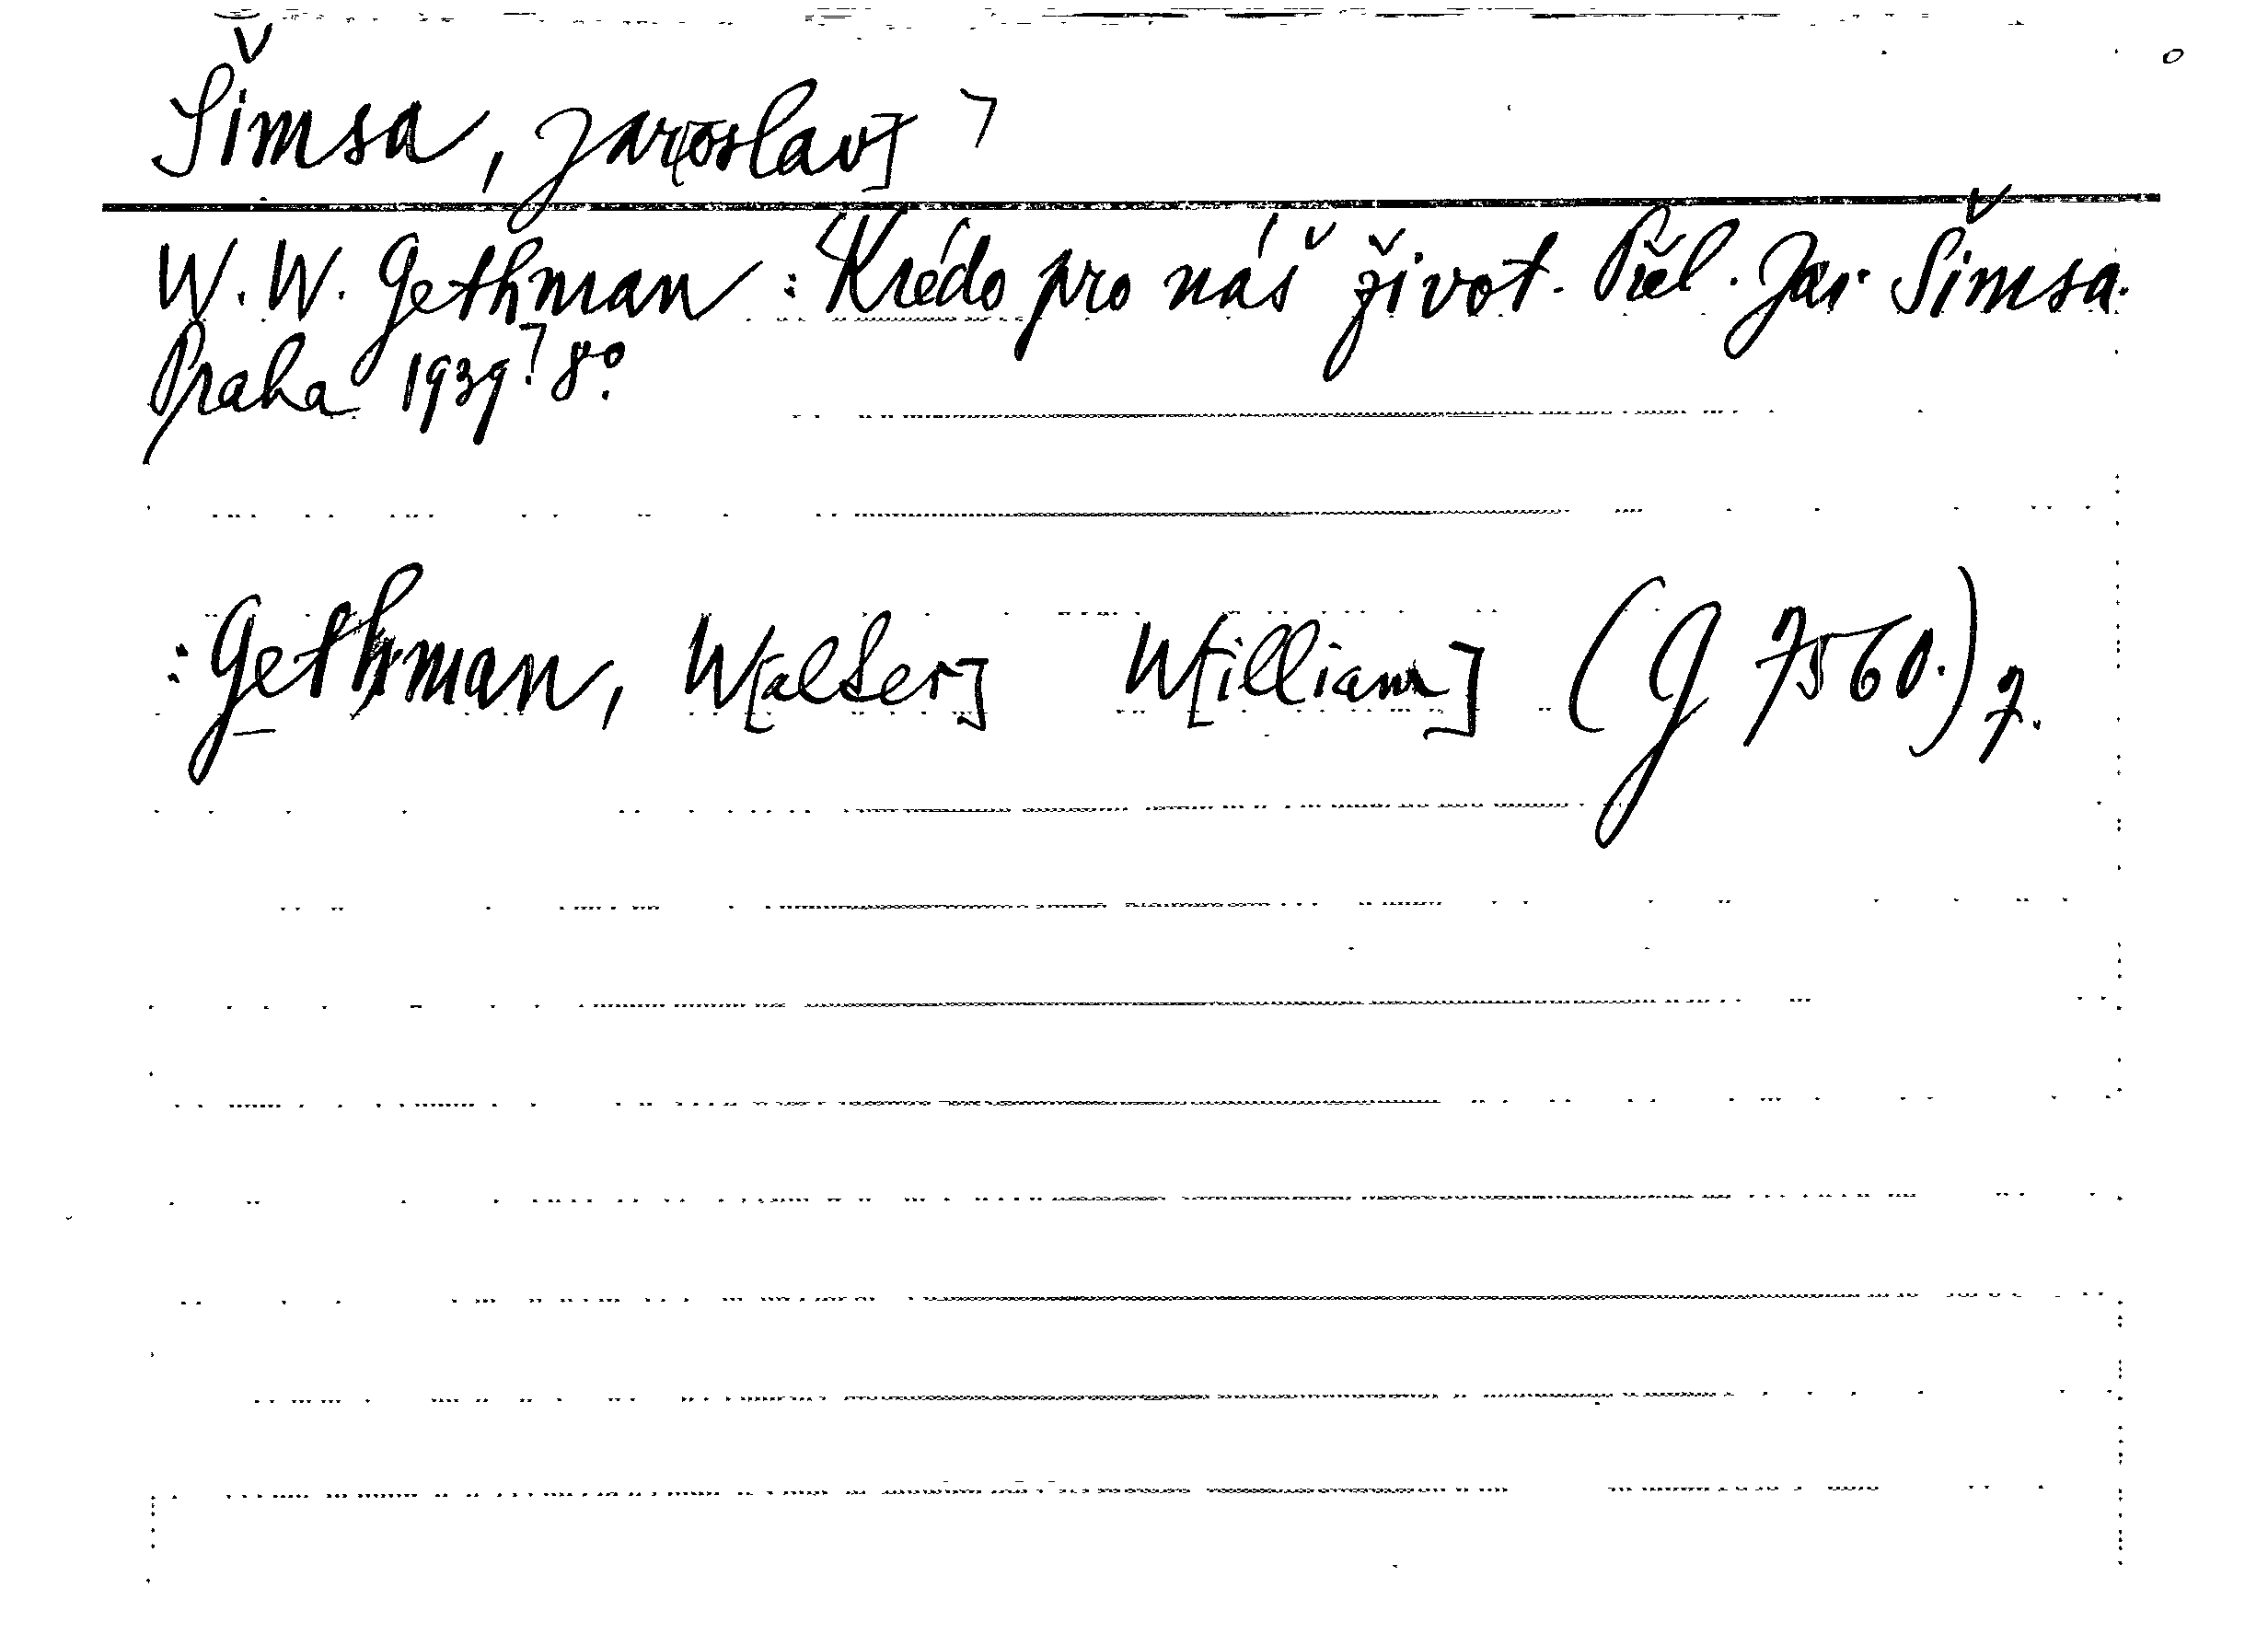 Šimsa, Jar[oslav] ⌝
W. W. Gethman: Krédo pro náš život. Přel. Jar. Šimsa.
Praha 1939.⌝ 8°.
: Gethman, W[alter] W[illiam] (G 7560.) 7.